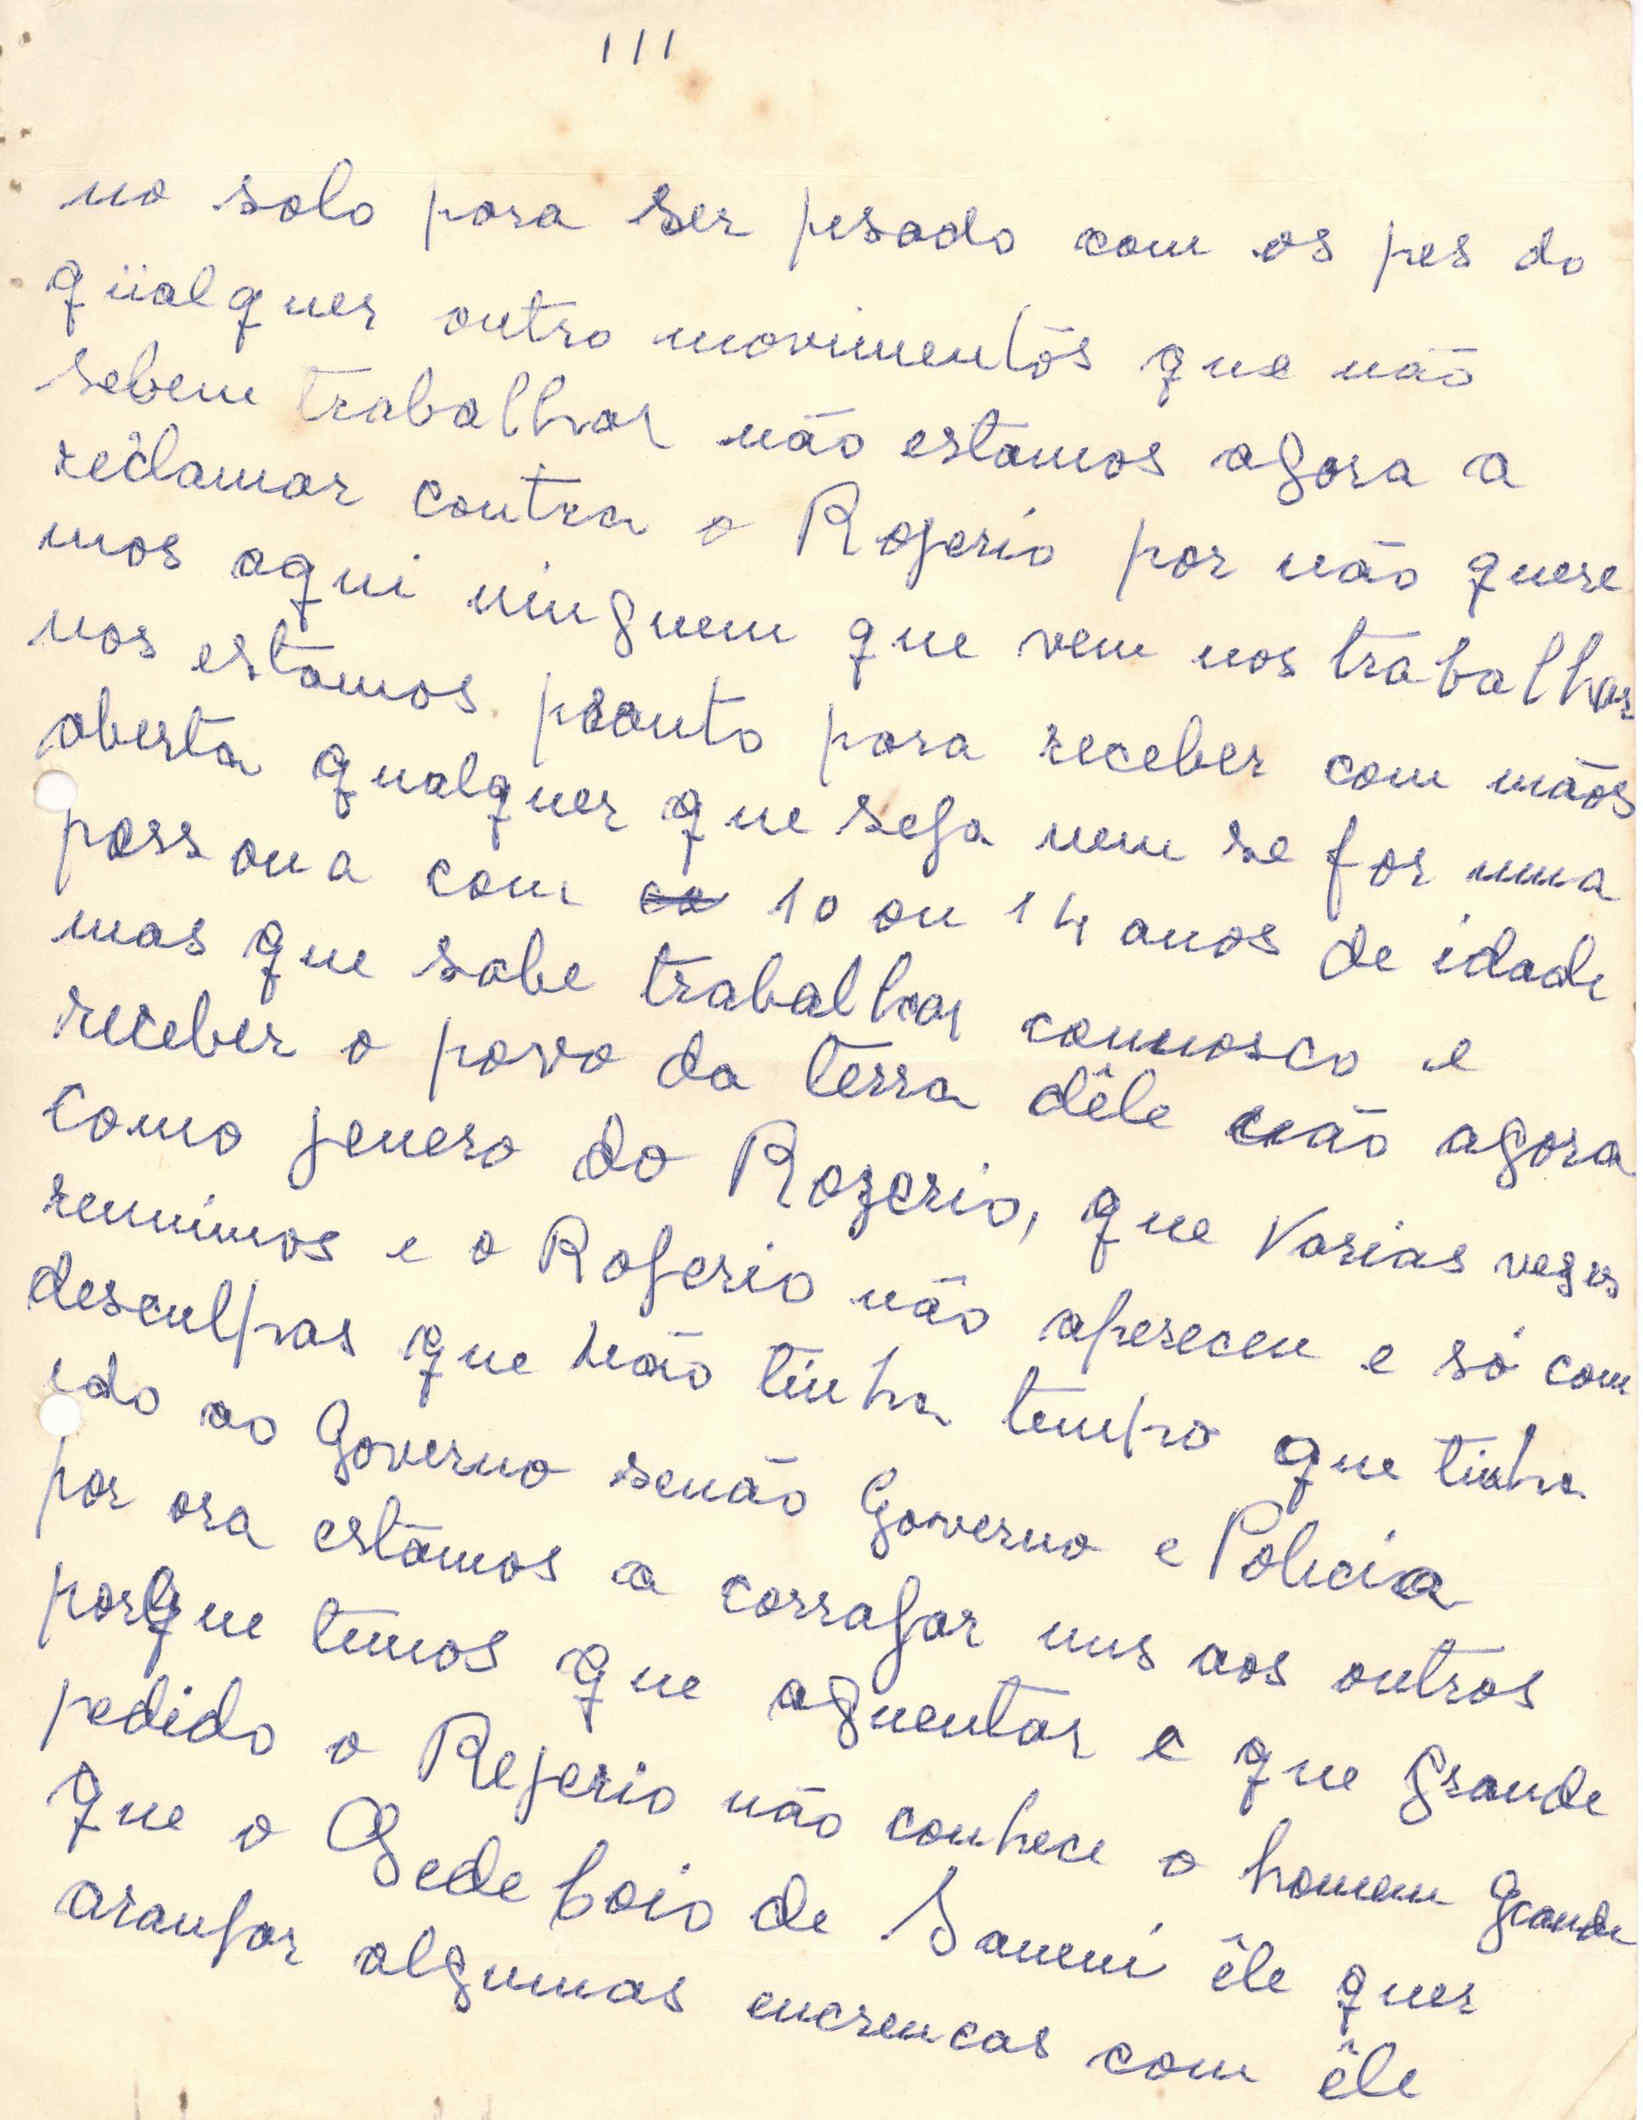 111
no solo para ser pesado com os pes do
qüalquer outro movimentõs que não
sebem trabalhar não estamos agora a
reclamar contra o Rogerio por não quere
mos aqui ninguem que vem nos trabalhar
nos estamos pronto para receber com mãos
aberta qualquer que seja nem se for uma
possoua com co 10 ou 14 anos de idade
mas que sabe trabalhar connosco e
receber o povo da terra dêle não agora
como genero do Rogerio, que varias vezes
reunimos e o Rogerio não apereceu e só com
desculpas que não tinha tempo que tinha
ido ao Governo senão Governo e Policia
por ora estâmos a corrajar uns aos outros
porque temos que aguentar e que grande
pedido o Regerio não conhece o homem grande
que o Gedeboio de Sameni êle quer
aranjar algumas encrencas com êle